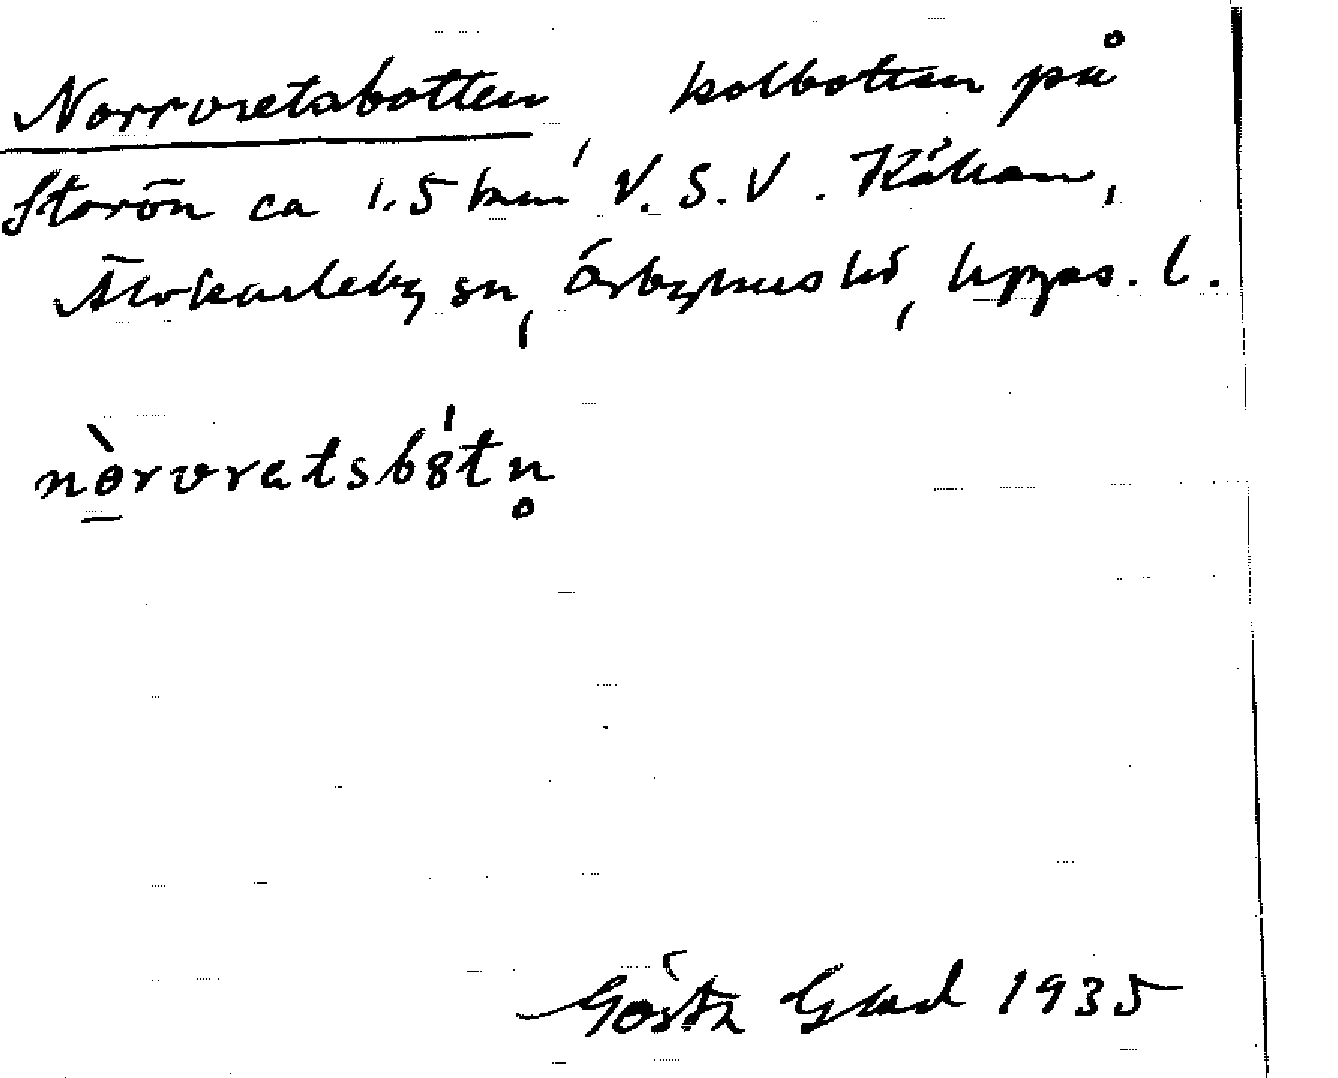 Norrvretsbotten, kolbotten på
Storön ca 1.5 km V.S.V. Kåkan,
Älvkarleby sn, Örbyhus hd, Upps. l.
nòrvretsbȣ́tn̥
Gösta 1935